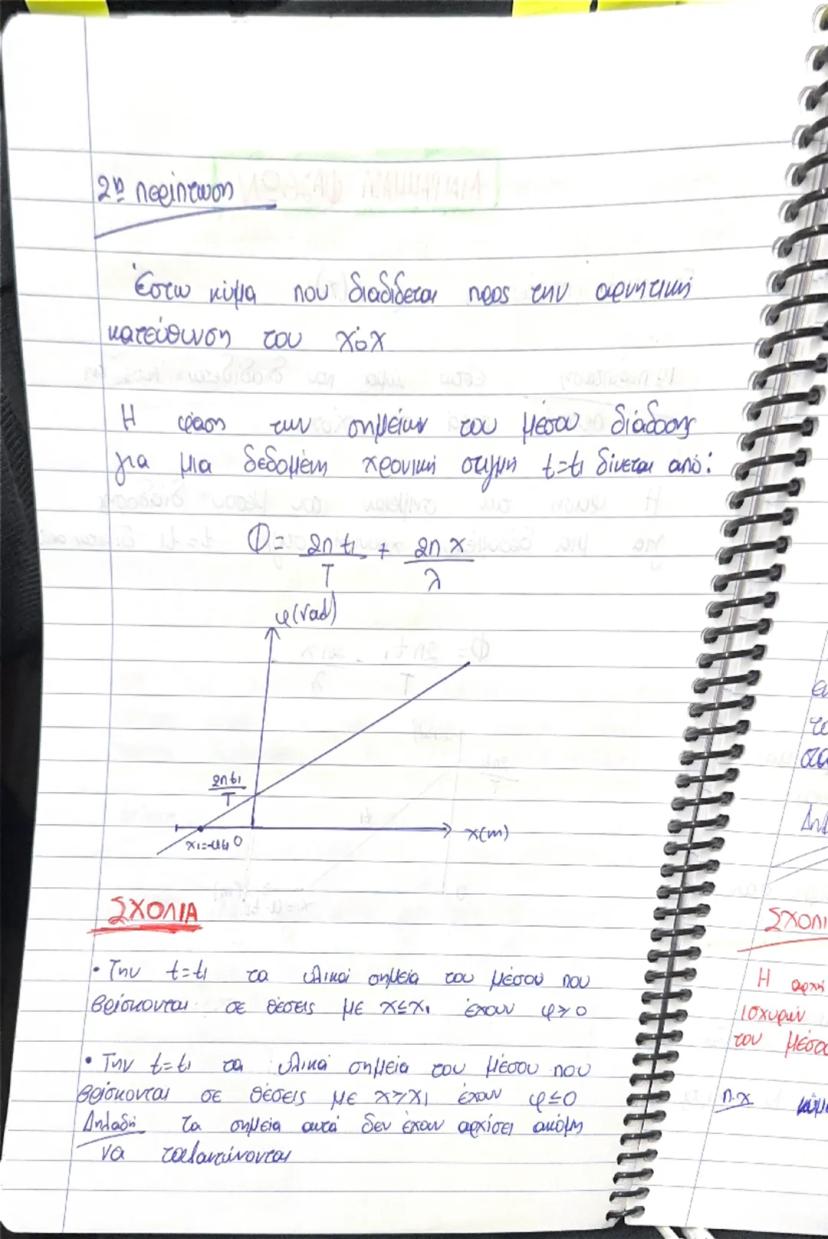 2η περίπτωση
Έστω κύμα που διαδίδεται προς την αρνητική
κατεύθυνση του x'οx
Η φάση των σημείων του μέσου διάδοσης
για μια δεδομένη χρονική στιγμή t=t₁ δίνεται από:
Φ = 2πt₁/T + 2πx/λ
φ(rad)
2πt₁/T
x₁=-υt₁ 0 x(m)
ΣΧΟΛΙΑ
• Την t=t₁ τα υλικά σημεία του μέσου που
βρίσκονται σε θέσεις με x≤x₁ έχουν φ>0
• Την t=t₁ τα υλικά σημεία του μέσου που
βρίσκονται σε θέσεις με x>x₁ έχουν φ≤0
Δηλαδή τα σημεία αυτά δεν έχουν αρχίσει ακόμη
να ταλαντώνονται
ΣΧΟΛΙ
Η αρχή
ισχυρών
του μέσο
π.χ κύμα